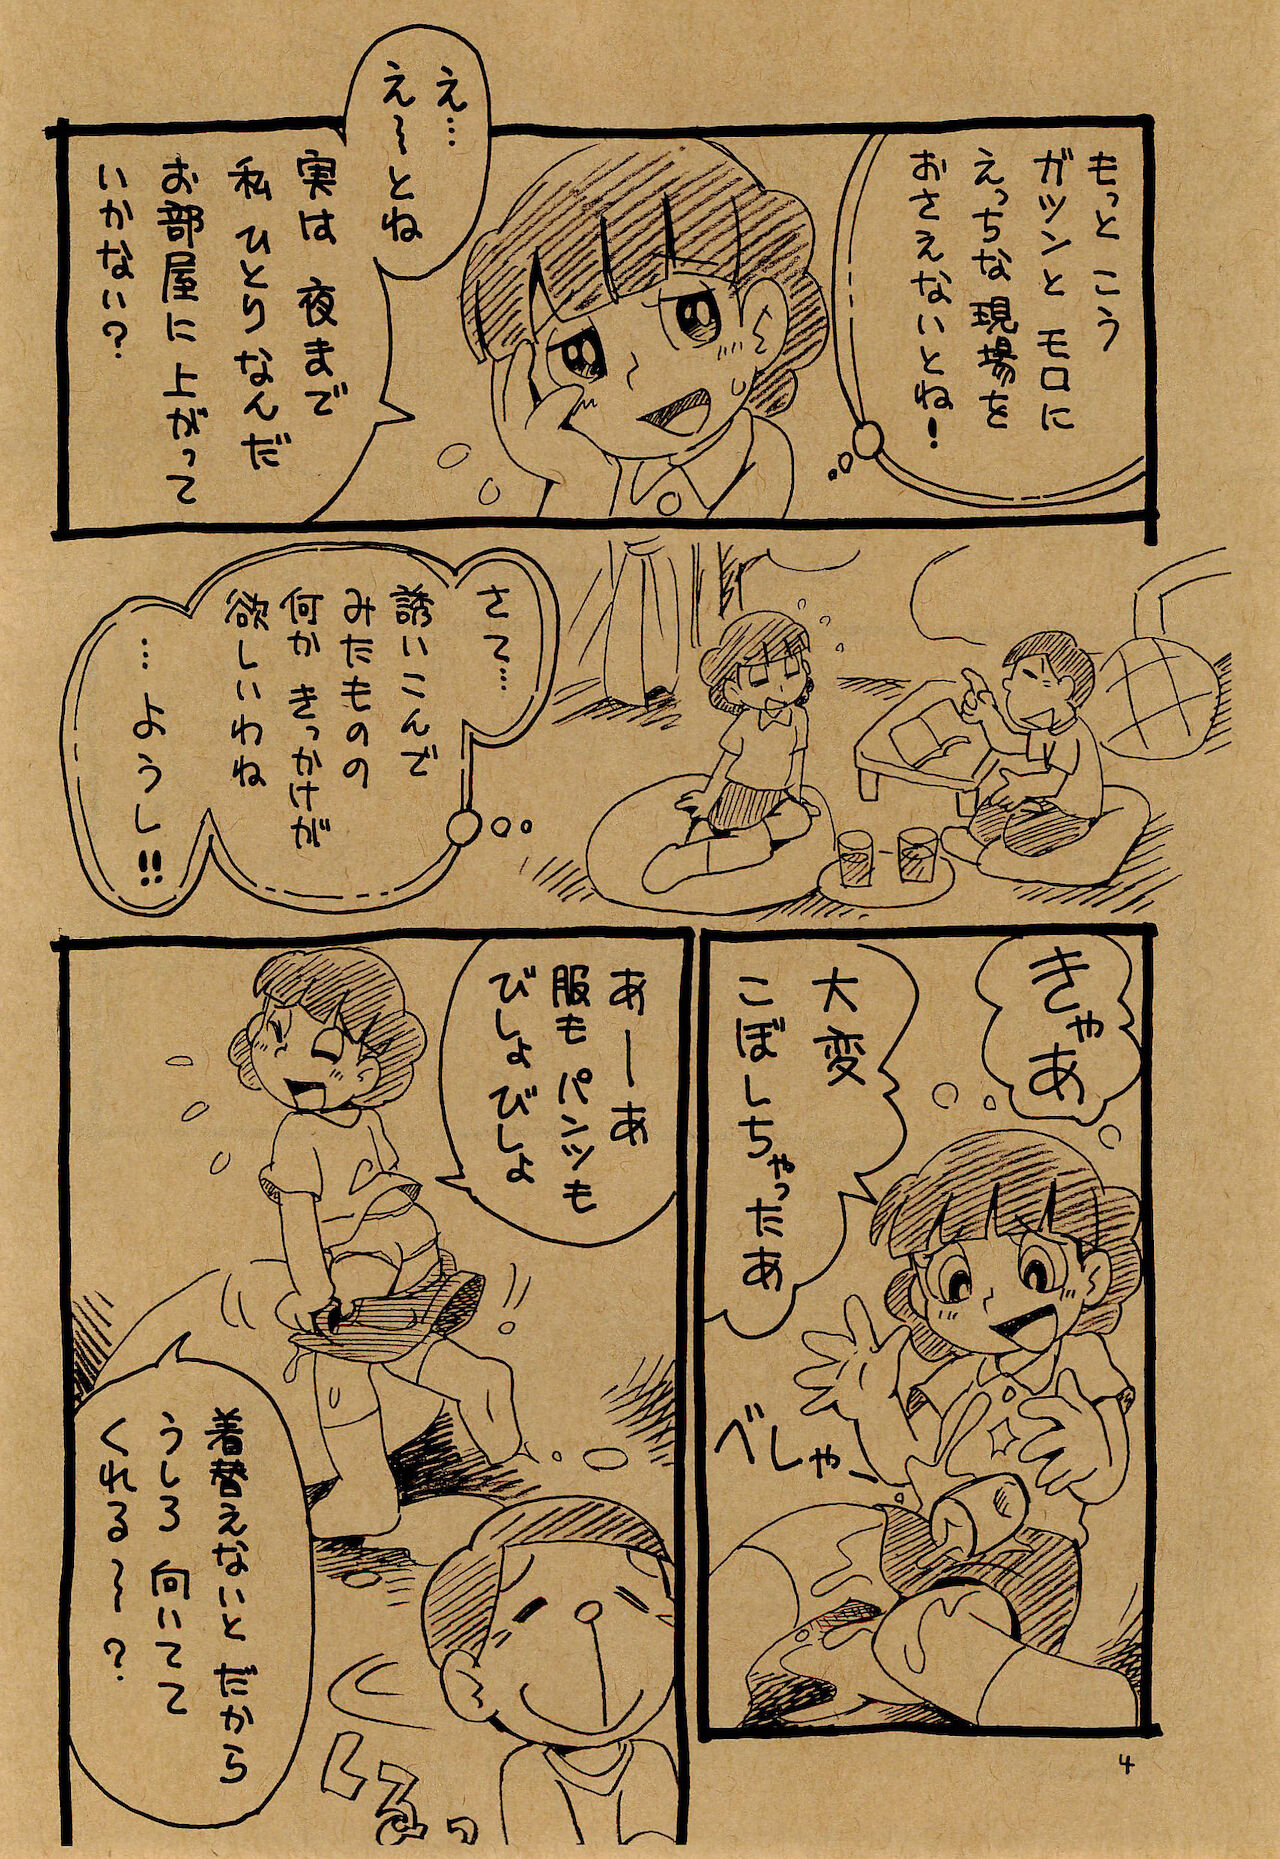 もっとこう
ガツンとモロに
えっちな現場を
おさえないとね!
え…
え〜とね
実は夜まで
私ひとりなんだ
お部屋に上がって
いかない?
さて…
誘いこんで
みたものの
何かきっかけが
欲しいわね
…ようし!!
きゃあ
大変
こぼしちゃったぁ
べしゃ、
あーあ
服もパンツも
びしょびしょ
着替えないとだから
うしろ向いてて
くれる〜?
くるっ
4